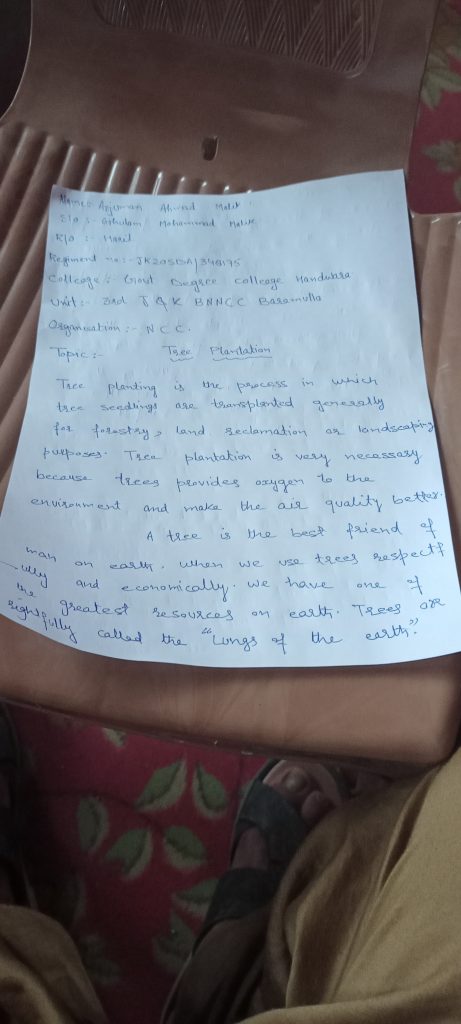 Name:- Arjuman Ahmad Malik
S/O :- Ghulam Mohammad Malik
R/O :- Haril
Regiment no:- JK20SDA/346175
Colleage :- Govt Degree colleage Handwara
Unit:- 2nd J & K BNNCC Baramulla
Organisation :- N C C.
Topic :- Tree Plantation
Tree planting is the process in which
tree seedlings are transplanted generally
for forestry, land reclamation or landscaping
purposes. Tree plantation is very necessary
because trees provides oxygen to the
environment and make the air quality better.
A tree is the best friend of
man on earth. when we use trees respectf
-ully and economically. we have one of
the greatest resources on earth. Trees are
rightfully called the "Lungs of the earth."